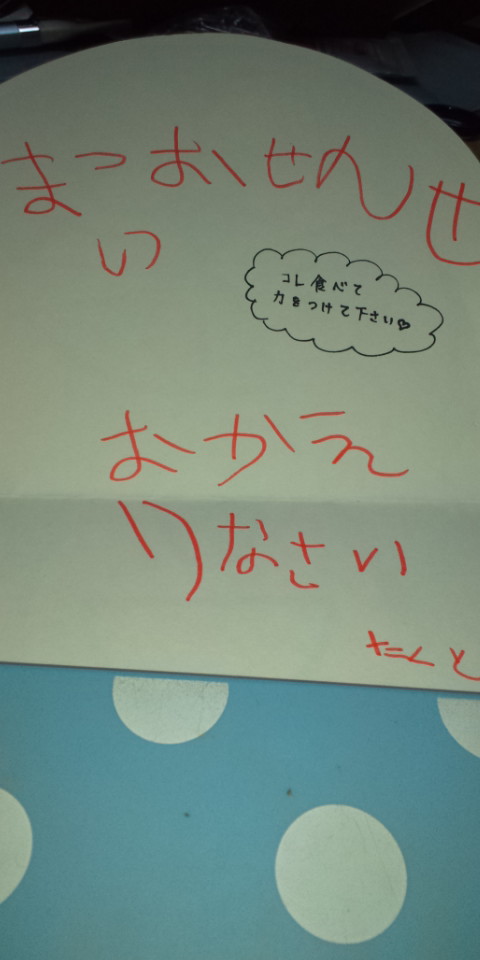 まつおせんせ
い
コレ食べて
力をつけて下さい♡
おかえ
りなさい
たくと